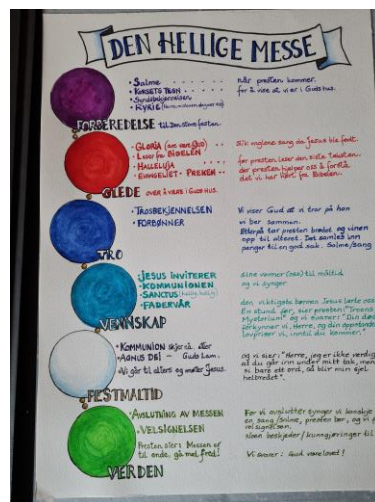 DEN HELLIGE MESSE
• Salme
• KORSETS TEGN
• Syndsbekjennelsen
• KYRIE
når presten kommer.
for å vise at vi er i Guds hus.
FORBEREDELSE til Den store festen.
• GLORIA
• Leser fra BIBELEN
• HALLELUJA
• EVANGELIET - PREKEN
Slik englene sang da Jesus ble født.
før presten leser den siste teksten.
der presten hjelper oss å forstå
det vi har hørt fra Bibelen.
GLEDE OVER Å VÆRE I GUDS HUS.
• TROSBEKJENNELSEN
• FORBØNNER
Vi viser Gud at vi tror på han
vi ber sammen.
Etterpå tar presten brødet og vinen
opp til alteret. Det samles inn
penger til en god sak. Salme/sang
TRO
• JESUS INVITERER
• KOMMUNIONEN
• SANCTUS
• FADERVÅR
sine venner (oss) til måltid
og vi synger
den viktigste bønnen Jesus lærte oss
En stund før, sier presten: "Troens
Mysterium" og vi svarer: "Din død
forkynner vi, Herre, og din oppstandelse
lovpriser vi, inntil du kommer."
VENNSKAP
• KOMMUNION skjer nå.
• AGNUS DEI - Guds Lam.
• Vi går til alters og møter Jesus.
og vi sier: "Herre, jeg er ikke verdig
at du går inn under mitt tak, men
si bare ett ord, så blir min sjel
helbredet".
FESTMÅLTID
• AVSLUTNING AV MESSEN
• VELSIGNELSEN
Presten sier: Messen er
til ende, gå med fred!
Før vi avslutter synger vi kanskje
en sang/salme, presten ber, og vi
velsignelsen.
Noen beskjeder/kunngjøringer til
Vi svarer: Gud være lovet!
VERDEN